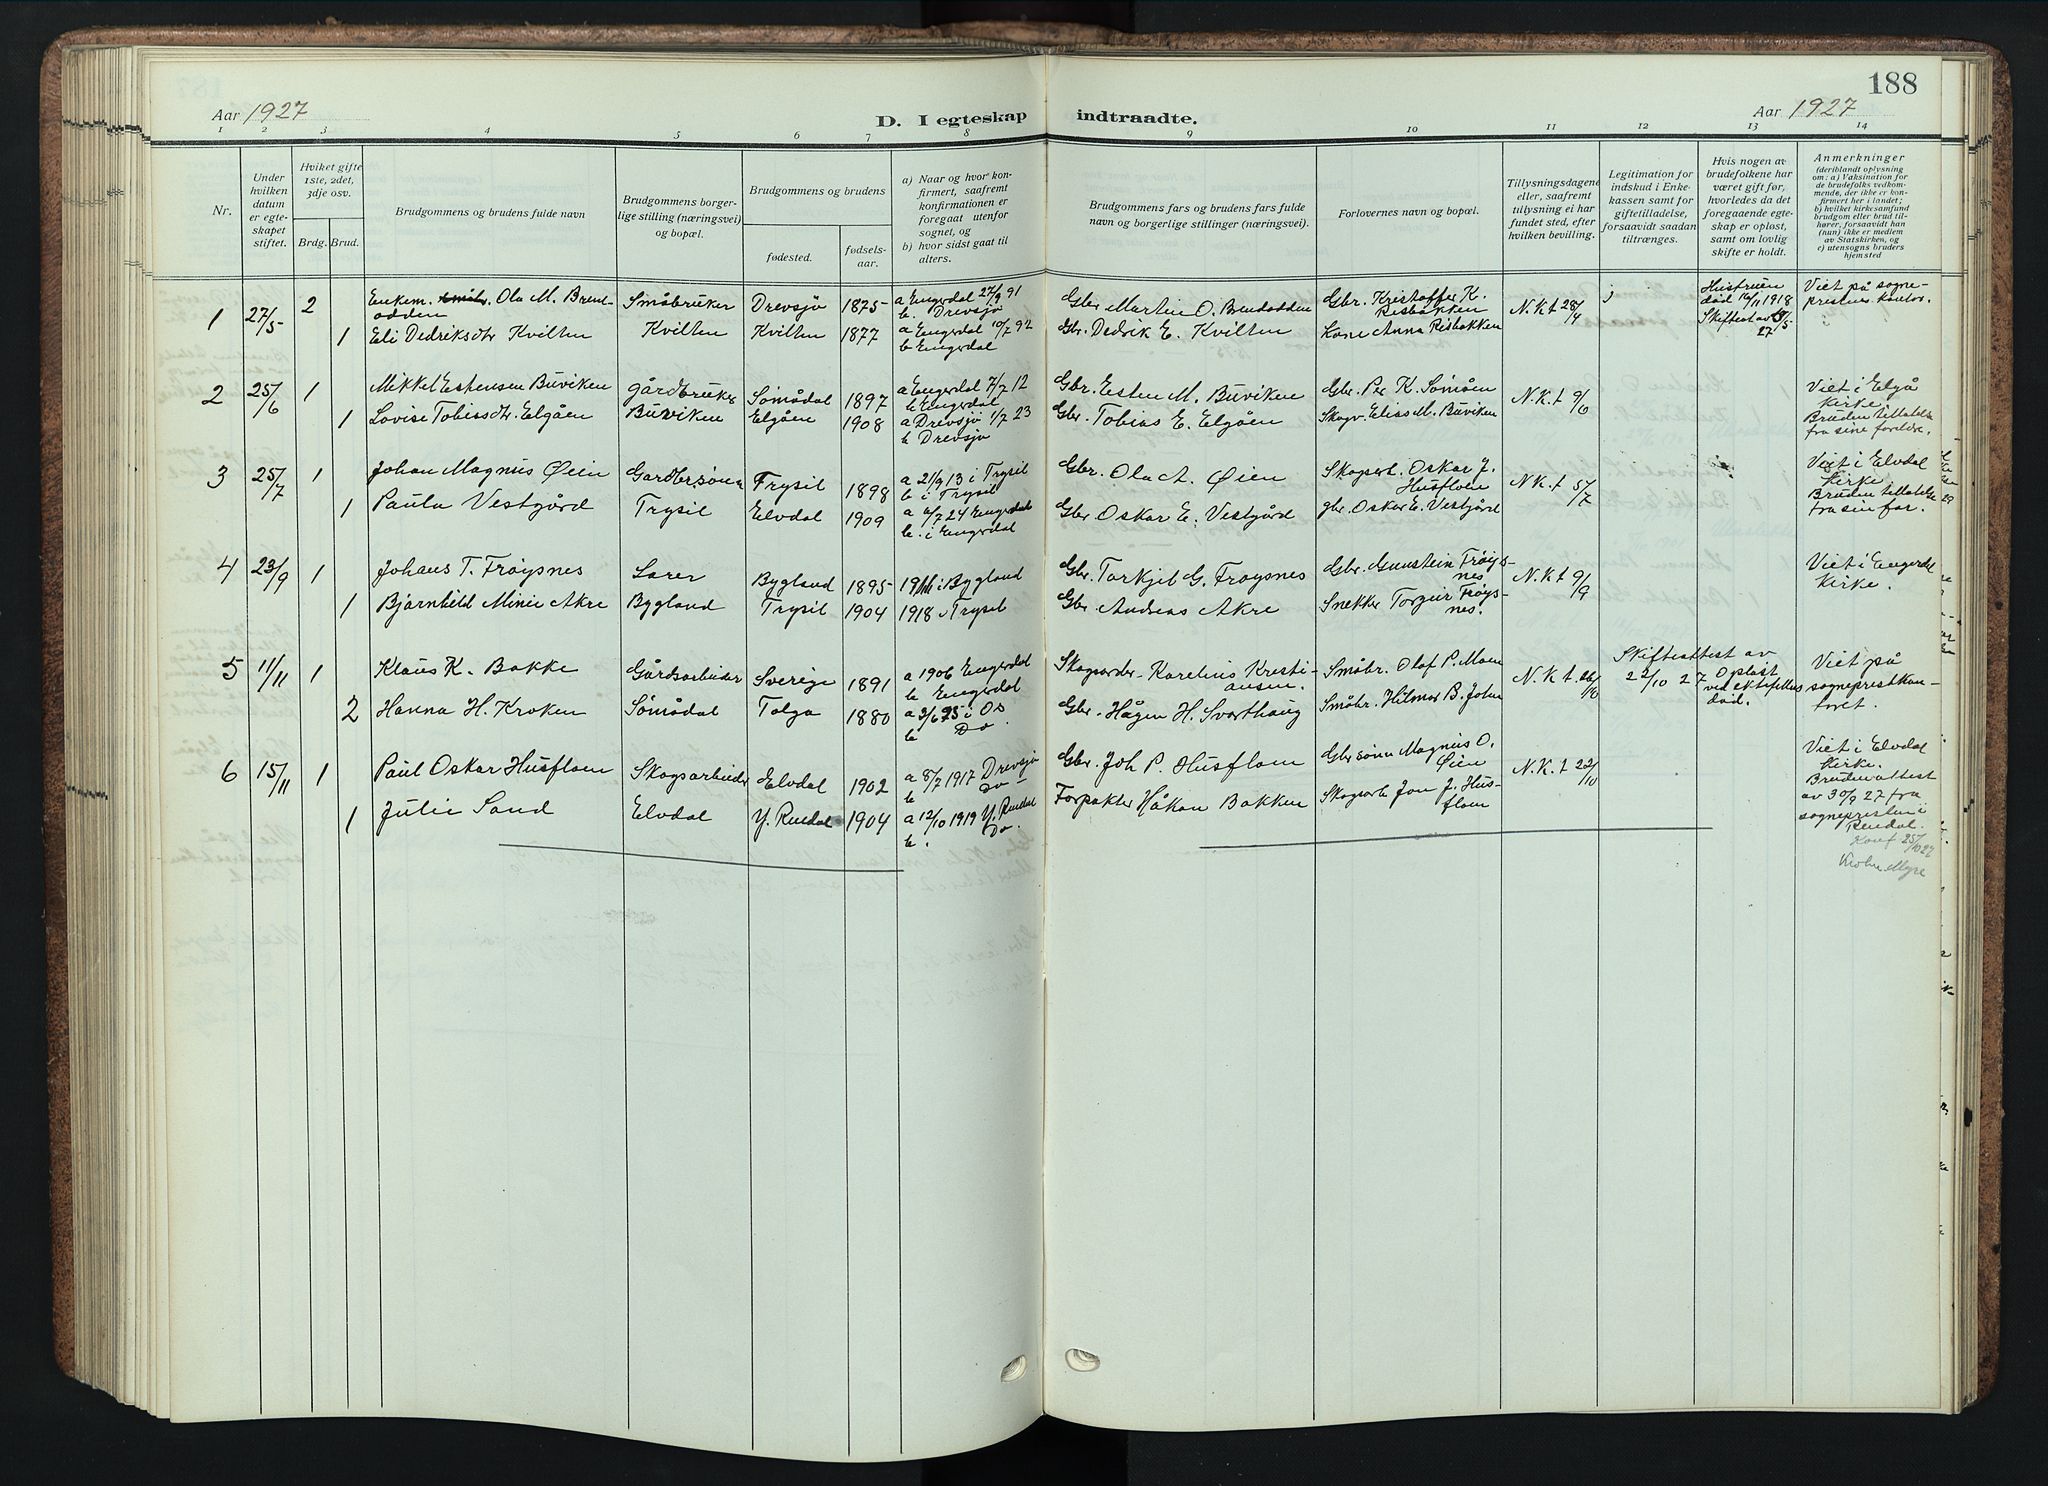 188
Aar 1927
D. I egteskap indtraadte.
Aar 1927
1 2 3 4 5 6 7 8 9 10 11 12 13 14
Nr.
Under hvilken datum er egteskapet stiftet.
Hviket gifte 1ste, 2det, 3dje osv.
Brdg. Brud.
Brudgommens og brudens fulde navn
Brudgommens borgerlige stilling (næringsvei) og bopæl.
Brudgommens og brudens
fødested.
fødselsaar.
a) Naar og hvor konfirmert, saafremt konfirmationen er foregaat utenfor sognet, og
b) hvor sidst gaat til alters.
Brudgommens fars og brudens fars fulde navn og borgerlige stillinger (næringsvei).
Forlovernes navn og bopæl.
Tillysningsdagene eller, saafremt tillysning ei har fundet sted, efter hvilken bevilling.
Legitimation for indskud i Enkekassen samt for giftetilladelse, forsaavidt saadan tiltrænges.
Hvis nogen av brudefolkene har været gift før, hvorledes da det foregaaende egteskap er opløst, samt om lovlig skifte er holdt.
Anmerkninger
(deriblandt oplysning om: a) Vaksination for de brudefolks vedkommende, der ikke er konfirmert her i landet; b) hvilket kirkesamfund brudgom eller brud tilhører, forsaavidt han (hun) ikke er medlem av Statskirken, og c) utensogns bruders hjemsted
1 27/5 2 Enkem. Ola M. Brenodden Småbruker Drevsjø 1875 a Engerdal 27/9 91 b. Drevsjø Gbr Martin O. Brendodden Gbr. Kristoffer K. Risbakken N.K. t 28/4 Hustruen død 16/11 1918 Skifteat av 27 Viet på sogneprestens kontor.
1 Eli Dedriksdtr Kvilten Kvilten Kvilten 1877 a Engerdal 10/7 92 b Engerdal Gbr. Dedrik E. Kvilten Kone Anna Risbakken
2 25/6 1 Mikkel Estensen Buviken gårdbruker Sømådal 1897 a Engerdal 7/7 12 b Engerdal Gbr. Esten M. Buviken Gbr. Per K. Sømåen N.K. t 9/6 Viet i Elgå Kirke.
1 Lovise Tobiasdtr. Elgåen Buviken Elgåen 1908 a Drevsjø 1/7 23 b Drevsjø Gbr. Tobias E. Elgåen Skogv. Elias M. Buviken Bruden tillatelse fra sine foreldre.
3 25/7 1 Johan Magnus Øien Gardbrsønn Trysil 1898 a 21/9 13 i Trysil b. i Trysil Gbr. Ola A. Øien Skogsarb. Oskar J. Husfloen N.K. t 5/7 Viet i Elvdal Kirke.
1 Paula Vestgård Trysil Elvdal 1909 a 6/7 24 Engerdal b. i Engerdal Gbr Oskar E. Vestgård gbr. Oskar E. Vestgård Bruden tillatelse fra sin far.
4 23/9 1 Johans T. Frøysnes Lærer Bygland 1895 i Bygland Gbr. Torkjel G. Frøysnes Gbr. Gunstein Frøysnes N.K. t 9/9 Viet i Engerdal Kirke.
1 Bjørnhild Minie Akre Bygland Trysil 1904 1918 i Trysil Gbr. Andreas Akre Snekker Torgur Frøysnes.
5 11/11 1 Klaus K. Bakke Gårdsarbeider Sverige 1891 a 1906 Engerdal b Engerdal Skogsarder Karelius Kristiansen. Småbr. Olaf P. Moen N.K. t 26/10 Skifteattest av 22/10 27 Opløst ved ektefellens død. Viet på sogneprestkontoret.
2 Hanna H. Kroken Sømådal Tolga 1880 a 3/6 95 i Os b Do Gbr. Hågen H. Svarthaug Småbr. Hilmar B. John
6 15/11 1 Paul Oskar Husfloen Skogsarbeider Elvdal 1902 a 8/7 1917 Drevsjø b Do Gbr. Joh P. Husfloen Gbrsønn Magnus O. Øien N.K. t 22/10 Viet i Elvdal Kirke.
1 Julie Sand Elvdal Y. Rendal 1904 a 12/10 1919 Y. Rendal b. Do. Forpakter Håkon Bakken Skogsarb Jon J. Husfloen Brudenattest av 30/9 27 fra sognepresten i Rendal.
Konf 25/10 27